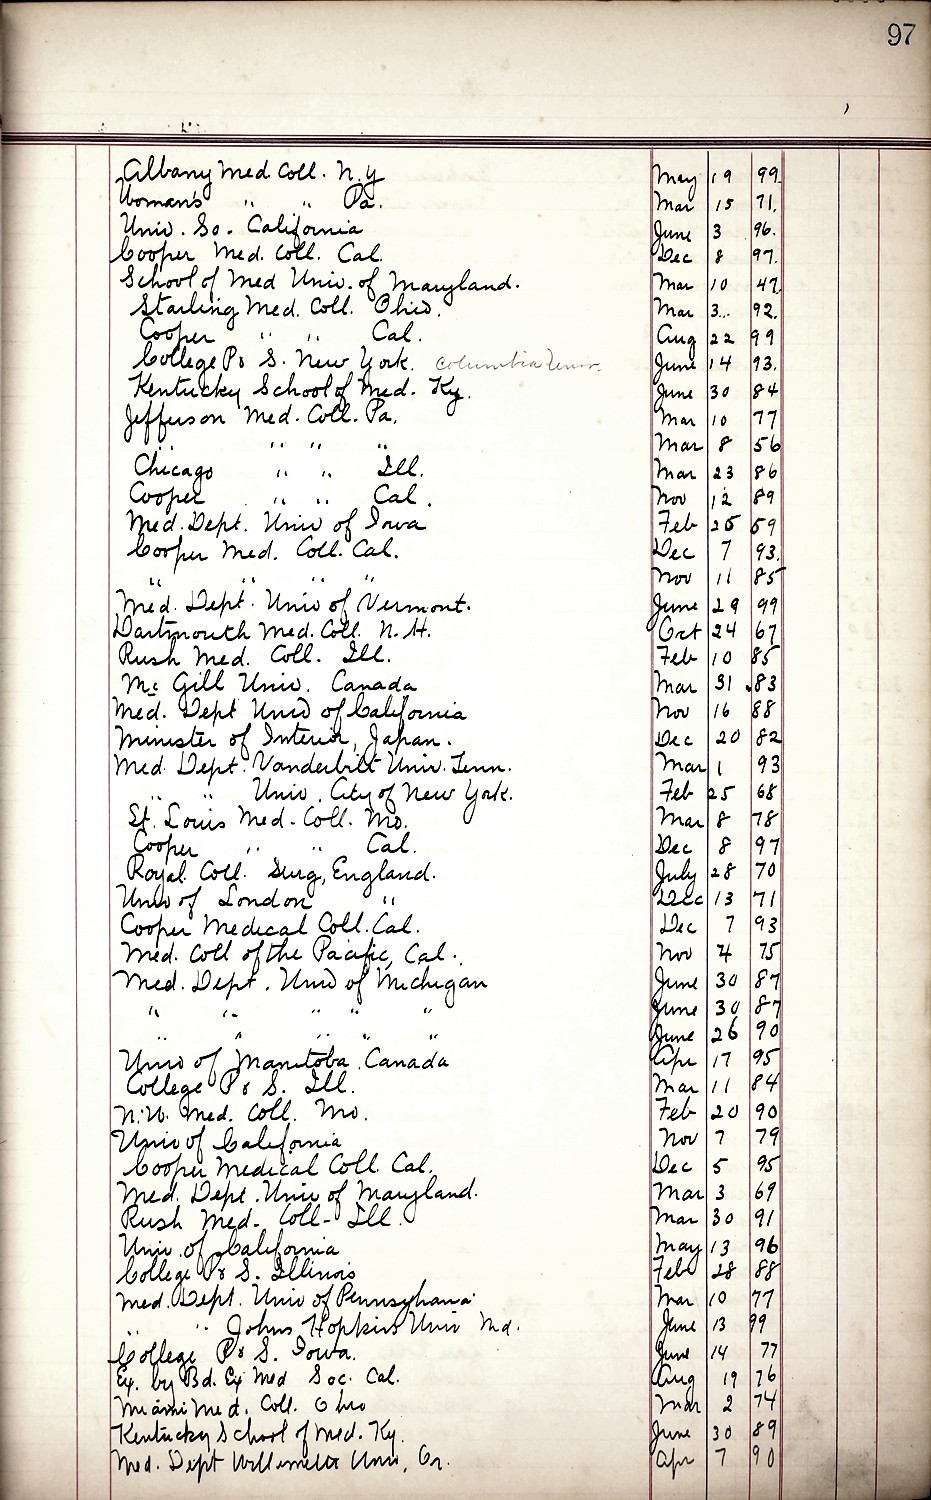 97
Albany Med Coll. N.Y May 19 99.
Woman's " " Pa. Mar 15 71.
Univ. So. California June 3 96.
Cooper Med. Coll. Cal. Dec 8 97.
School of Med Univ. of Maryland. Mar 10 47.
Starling Med. Coll. Ohio. Mar 3.. 92.
Cooper " " Cal. Aug 22 99
College P & S. New York. Columbia Univ. June 14 93.
Kentucky School of Med. Ky. June 30 84
Jefferson Med. Coll. Pa. Mar 10 77
" " " " Mar 8 56
Chicago " " Ill. Mar 23 86
Cooper " " Cal. Nov 12 89
Med. Dept. Univ of Iowa Feb 25 59
Cooper Med. Coll. Cal. Dec 7 93.
" " " " Nov 11 85
Med. Dept. Univ of Vermont. June 29 99
Dartmouth Med. Coll. N.H. Oct 24 67
Rush Med. Coll. Ill. Feb 10 85
Mc Gill Univ. Canada Mar 31 83
Med. Dept Univ of California Nov 16 88
Minister of Interior, Japan. Dec 20 82
Med. Dept. Vanderbilt Univ. Tenn. Mar 1 93
" " Univ. City of New York. Feb 25 68
St. Louis Med. Coll. Mo. Mar 8 78
Cooper " " Cal. Dec 8 97
Royal Coll. Surg, England. July 28 70
Univ of London " Dec 13 71
Cooper Medical Coll. Cal. Dec 7 93
Med. Coll of the Pacific, Cal. Nov 4 75
Med. Dept. Univ of Michigan June 30 87
" " " " " June 30 87
" " " " " June 26 90
Univ of Manitoba Canada Apr 17 95
College P & S. Ill. Mar 11 84
N.W. Med. Coll. Mo. Feb 20 90
Univ of California Nov 7 79
Cooper Medical Coll. Cal. Dec 5 95
Med. Dept. Univ of Maryland. Mar 3 69
Rush Med. Coll- Ill. Mar 30 91
Univ. of California May 13 96
College P & S. Illinois Feb 28 88
Med. Dept. Univ of Pennsylvania Mar 10 77
" " Johns Hopkins Univ Md. June 13 99
College P & S. Iowa. June 14 77
Ex. by Bd. Ex Med Soc. Cal. Aug 19 76
Miami Med. Coll. Ohio Mar 2 74
Kentucky School of Med. Ky. June 30 89
Med. Dept Willamette Univ, Or. Apr 7 90